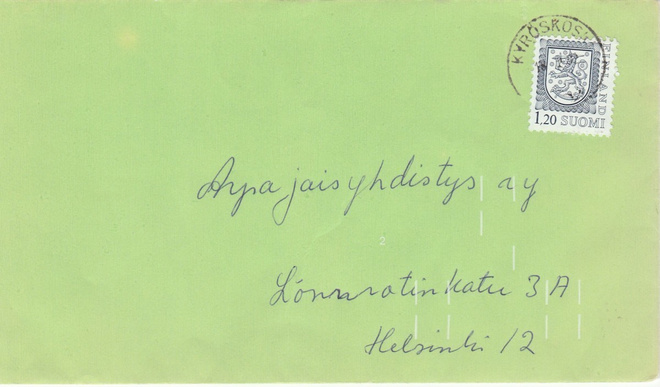 KYRÖSKOSKI
FINLAND
1,20 SUOMI
Arpajaisyhdistys ry
2
Lönnrotinkatu 3 A
Helsinki 12